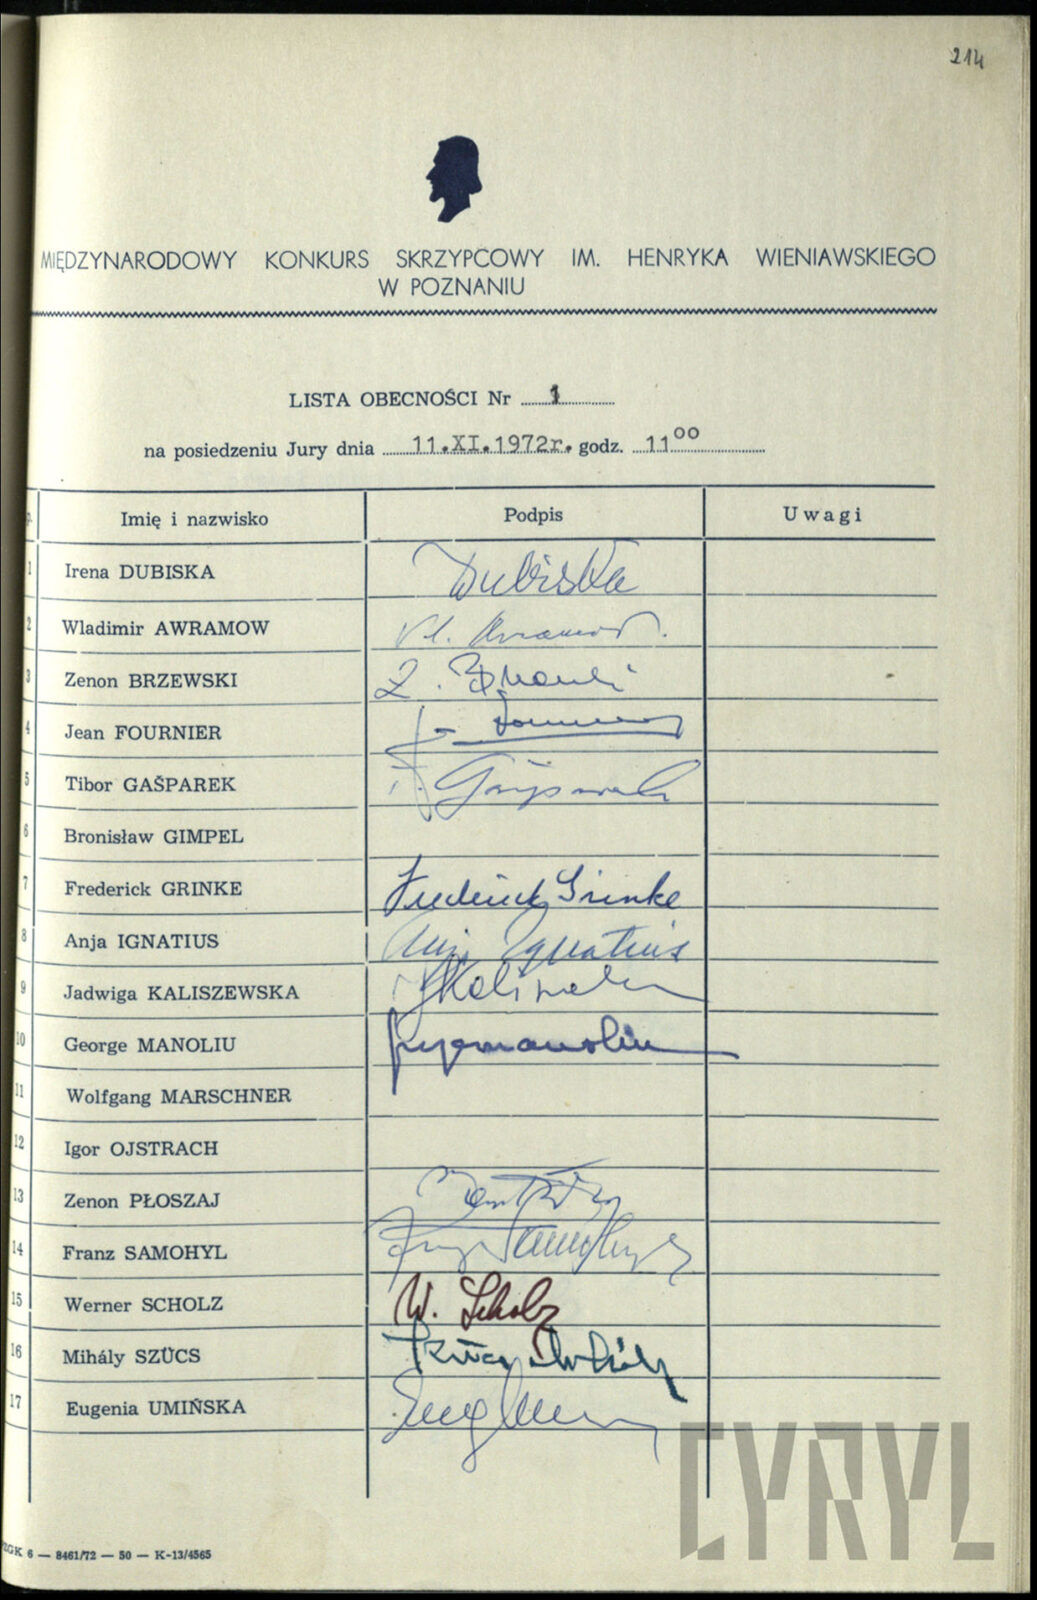 214
MIĘDZYNARODOWY KONKURS SKRZYPCOWY IM. HENRYKA WIENIAWSKIEGO
W POZNANIU
LISTA OBECNOŚCI Nr 1
na posiedzeniu Jury dnia 11.XI.1972r. godz. 11 00
Imię i nazwisko Podpis Uwagi
1 Irena DUBISKA Dubiska
2 Wladimir AWRAMOW Vl. Avramov.
3 Zenon BRZEWSKI Z. Brzewski
4 Jean FOURNIER
5 Tibor GAŠPAREK T. Gašparek
6 Bronisław GIMPEL
7 Frederick GRINKE Frederick Grinke
8 Anja IGNATIUS Anja Ignatius
9 Jadwiga KALISZEWSKA
10 George MANOLIU
11 Wolfgang MARSCHNER
12 Igor OJSTRACH
13 Zenon PŁOSZAJ
14 Franz SAMOHYL Franz Samohyl
15 Werner SCHOLZ W. Scholz
16 Mihály SZÜCS Szücs Mihály
17 Eugenia UMIŃSKA
6 — 8461/72 — 50 — K-13/4565
CYRYL